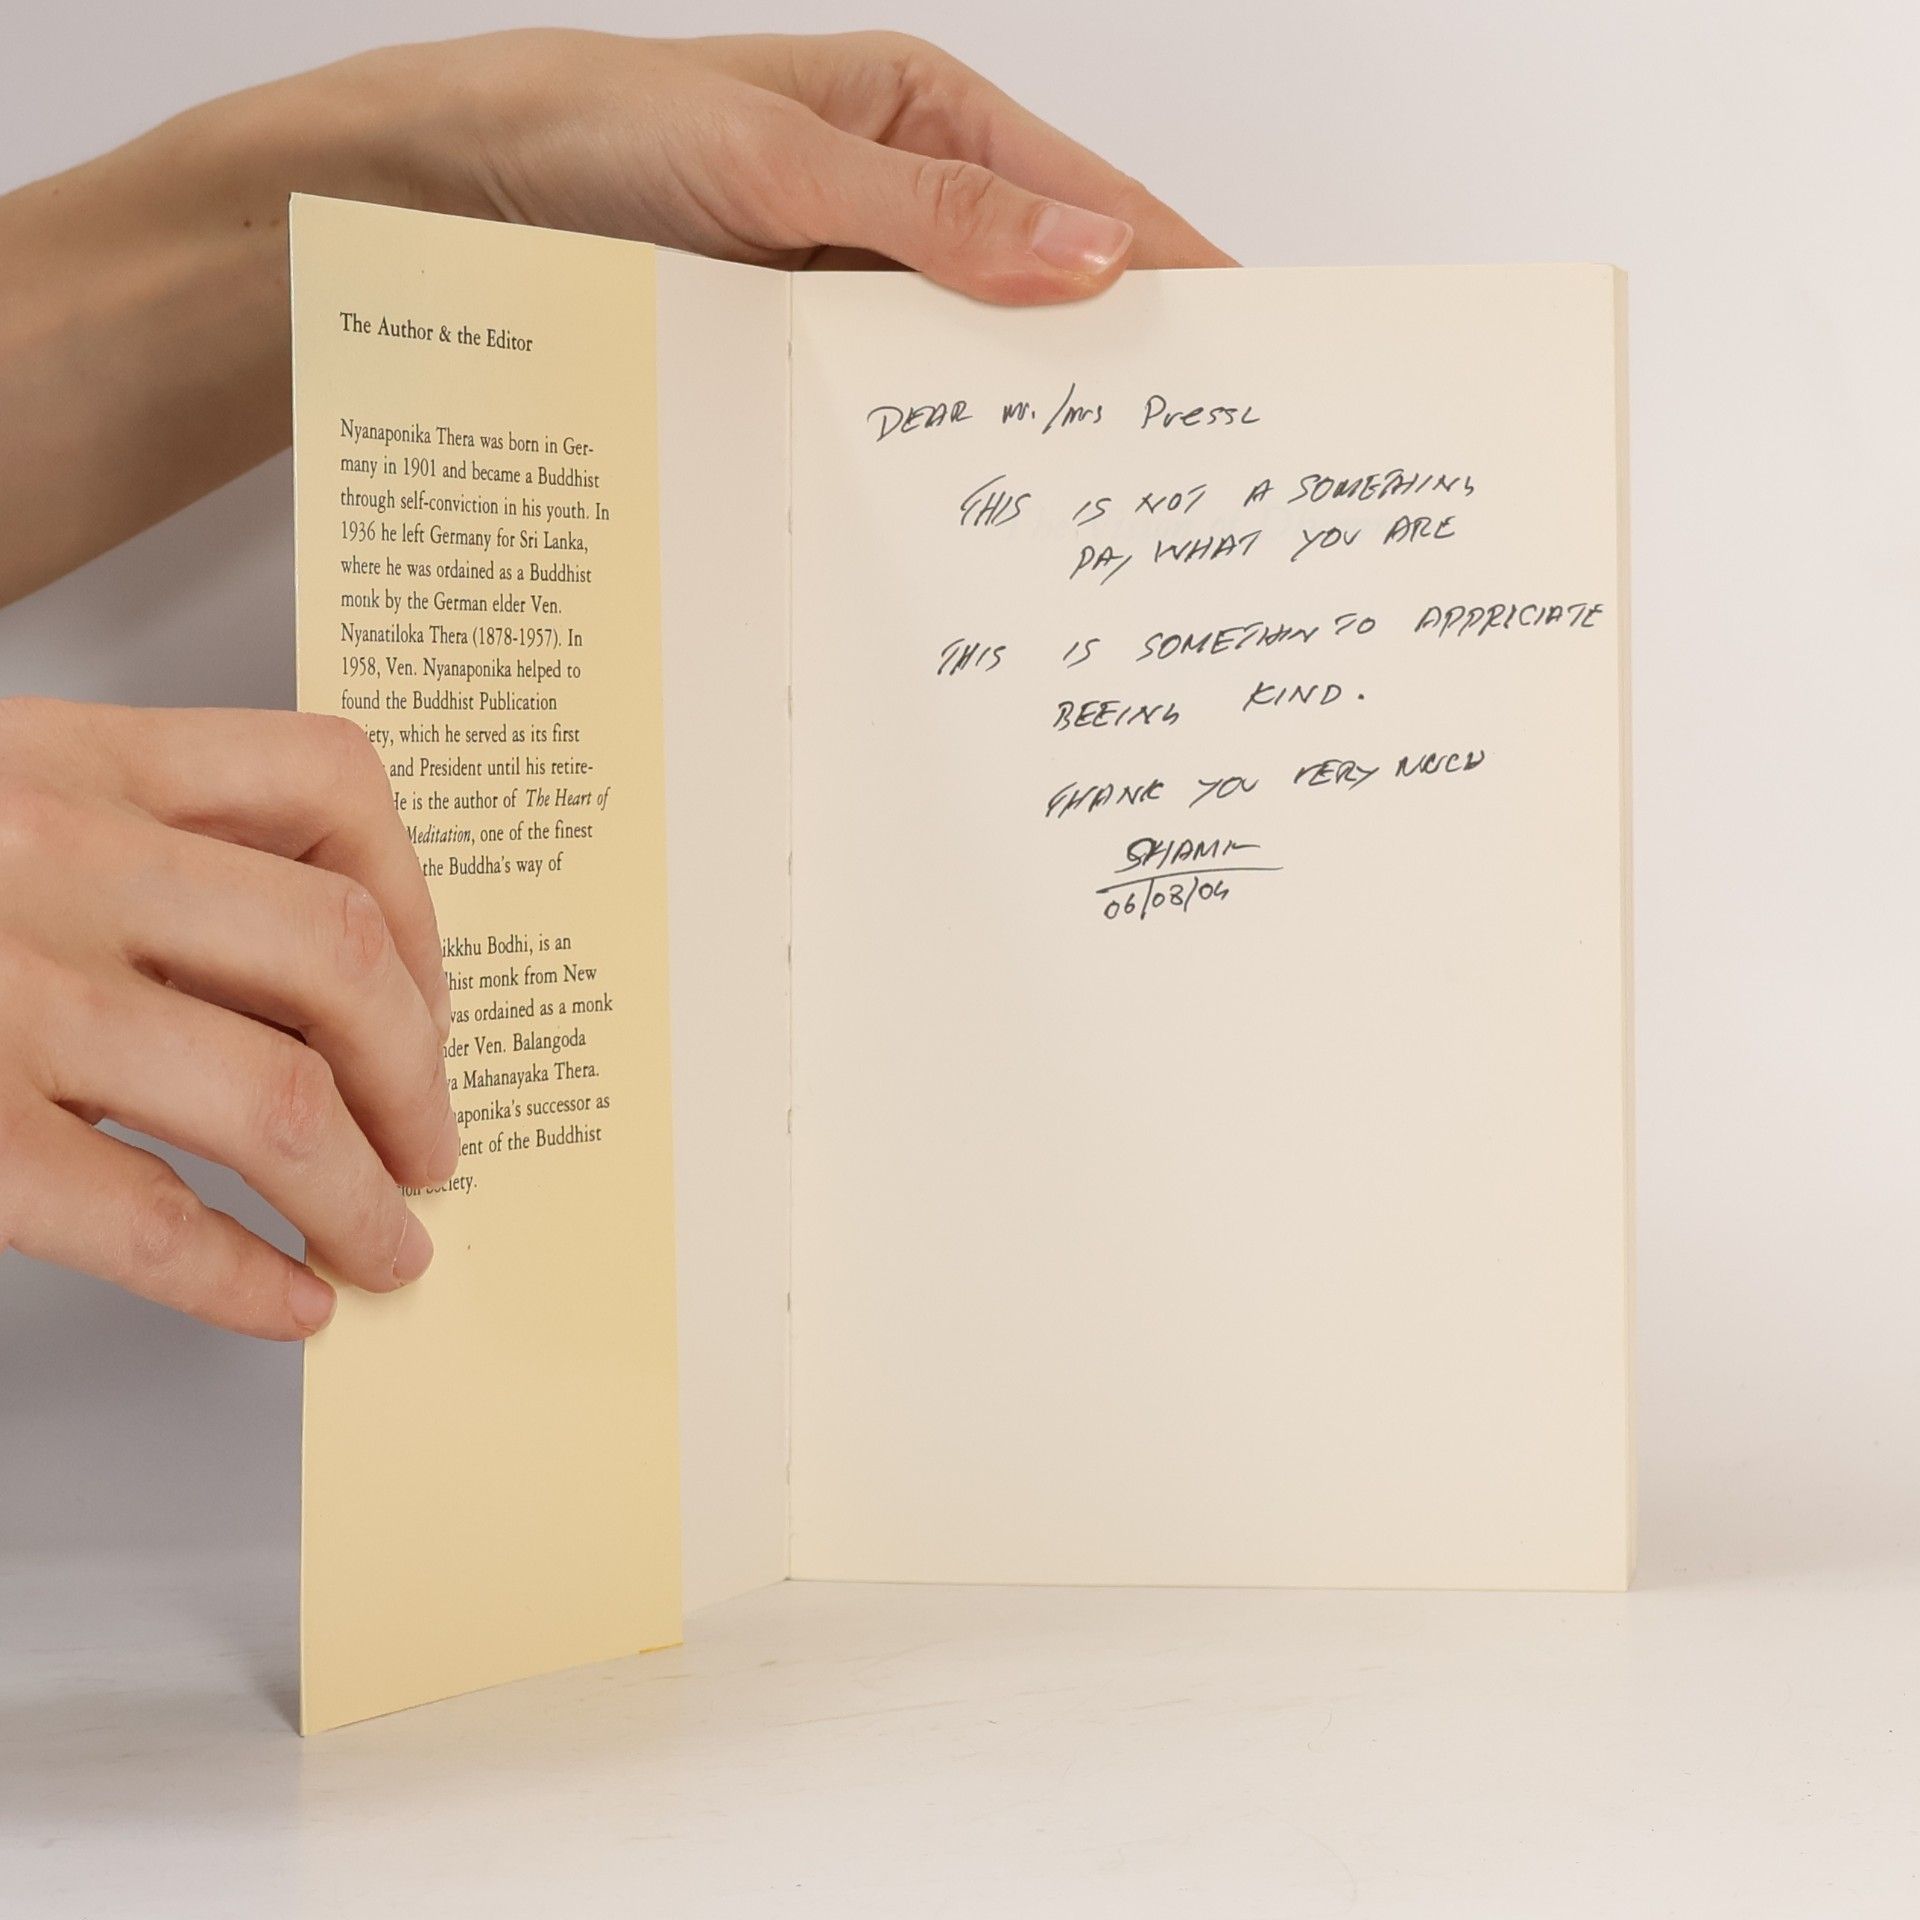 The Author & the Editor
Nyanaponika Thera was born in Ger-
many in 1901 and became a Buddhist
through self-conviction in his youth. In
1936 he left Germany for Sri Lanka,
where he was ordained as a Buddhist
monk by the German elder Ven.
Nyanatiloka Thera (1878-1957). In
1958, Ven. Nyanaponika helped to
found the Buddhist Publication
which he served as its first
and President until his retire-
is the author of The Heart of
Meditation, one of the finest
the Buddha's way of
Bodhi, is an
monk from New
was ordained as a monk
Ven. Balangoda
Mahanayaka Thera.
successor as
of the Buddhist
DEAR Mr./mrs Pressl
THIS IS NOT A SOMETHING
PAY WHAT YOU ARE
THIS IS SOMETHIN TO APPRICIATE
BEEING KIND.
THANK YOU VERY MUCH
06/08/04